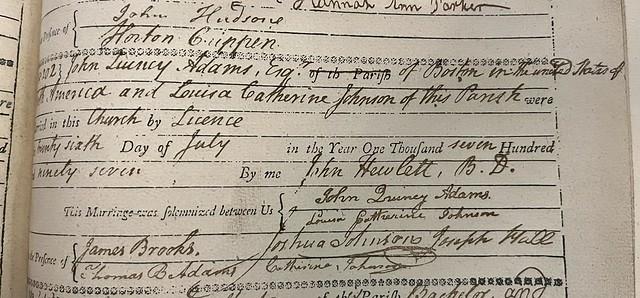 Hannah Ann Parker
Presence of { John Hudson
Horton Crippen
John Quincy Adams, Esq. of the Parish of Boston in the united States of
America and Louisa Catherine Johnson of this Parish were
in this Church by Licence
sixth Day of July in the Year One Thousand seven Hundred
ninety seven By me John Hewlett, B.D.
This Marriage was solemnized between Us { John Quincy Adams.
Louisa Catherine Johnson
Presence of { James Brooks. Joshua Johnson Joseph Hall
Thomas B. Adams Catherine Johnson
Parish Bachelor, and